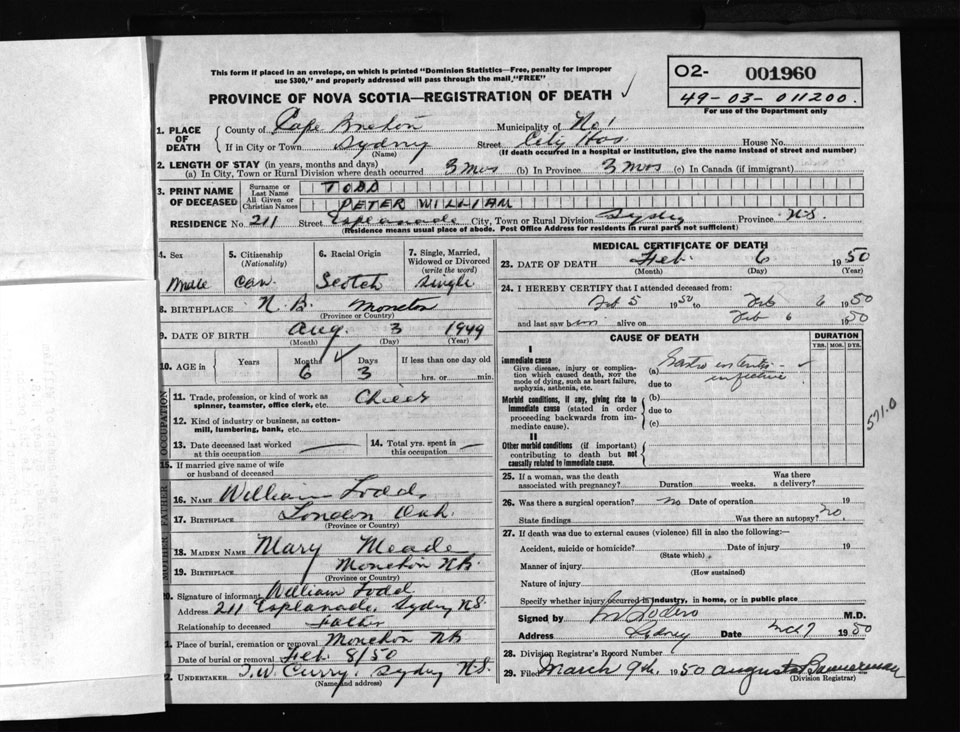 This form if placed in an envelope, on which is printed "Dominion Statistics—Free, penalty for improper
use $300," and properly addressed will pass through the mail, "FREE"
PROVINCE OF NOVA SCOTIA—REGISTRATION OF DEATH ✓
O2- 001960
49-03-011200.
For use of the Department only
1. PLACE OF DEATH { County of Cape Breton Municipality of No 1
If in City or Town Sydney Street City Hos House No.
(Name) (If death occurred in a hospital or institution, give the name instead of street and number)
2. LENGTH OF STAY (in years, months and days)
(a) In City, Town or Rural Division where death occurred 3 mos (b) In Province 3 mos (c) In Canada (if immigrant)
3. PRINT NAME OF DECEASED { Surname or Last Name TODD
All Given or Christian Names PETER WILLIAM
RESIDENCE No. 211 Street Esplanade City, Town or Rural Division Sydney Province N.S.
(Residence means usual place of abode. Post Office Address for residents in rural parts not sufficient)
4. Sex Male
5. Citizenship (Nationality) Can.
6. Racial Origin Scotch
7. Single, Married, Widowed or Divorced (write the word) single
8. BIRTHPLACE N.B. Moncton
(Province or Country)
9. DATE OF BIRTH Aug. 3 1949
(Month) (Day) (Year)
10. AGE in { Years Months ✓ Days If less than one day old
6 3 hrs. or min.
OCCUPATION
11. Trade, profession, or kind of work as spinner, teamster, office clerk, etc.
12. Kind of industry or business, as cotton-mill, lumbering, bank, etc.
13. Date deceased last worked at this occupation
14. Total yrs. spent in this occupation
15. If married give name of wife or husband of deceased
FATHER
16. NAME William Todd,
17. BIRTHPLACE London
(Province or Country)
MOTHER
18. MAIDEN NAME Mary Meade
19. BIRTHPLACE Moncton N.B.
(Province or Country)
20. Signature of informant William Todd
Address 211 Esplanade, Sydney N.S.
Relationship to deceased Father
21. Place of burial, cremation or removal Moncton NB
Date of burial or removal Feb. 8/50
22. UNDERTAKER T.W. Curry, Sydney N.S.
(Name and address)
MEDICAL CERTIFICATE OF DEATH
23. DATE OF DEATH Feb. 6 1950
(Month) (Day) (Year)
24. I HEREBY CERTIFY that I attended deceased from:
Feb 5 1950 to Feb 6 1950
and last saw him alive on Feb 6 1950
CAUSE OF DEATH DURATION
YRS. MOS. DYS.
I
Immediate cause
Give disease, injury or complication which caused death, NOT the mode of dying, such as heart failure, asphyxia, asthenia, etc.
(a) Gastro ✓
due to
Morbid conditions, if any, giving rise to immediate cause (stated in order proceeding backwards from immediate cause).
(b)
due to
(c)
571.0
II
Other morbid conditions (if important) contributing to death but not causally related to immediate cause.
25. If a woman, was the death associated with pregnancy? Duration weeks. Was there a delivery?
26. Was there a surgical operation? no Date of operation 19
State findings Was there an autopsy? no.
27. If death was due to external causes (violence) fill in also the following:—
Accident, suicide or homicide? Date of injury 19
(State which)
Manner of injury
(How sustained)
Nature of injury
Specify whether injury occurred in industry, in home, or in public place
Signed by M.D.
Address Sydney Date 1950
28. Division Registrar's Record Number
29. Filed March 9th, 1950 Bannerman
(Division Registrar)